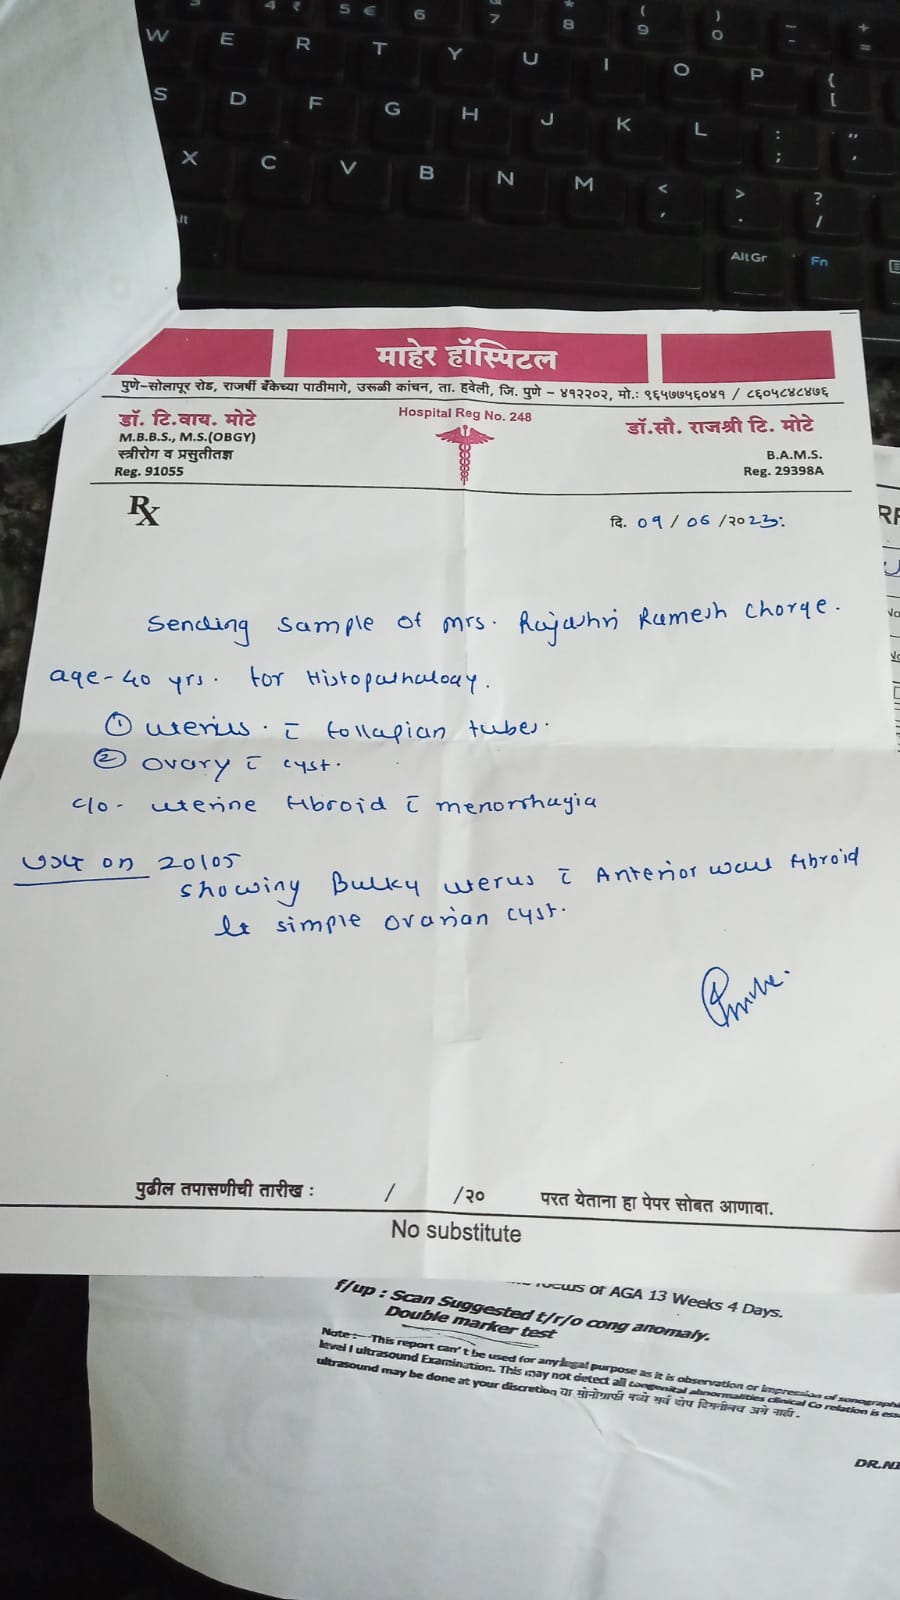 4 ₹ 5 € 6 7 * 8 ( 9 ) 0 _ - + =
W E R T Y U I O P { [
S D F G H J K L : ; " '
X C V B N M < , > . ? /
Alt AltGr Fn
माहेर हॉस्पिटल
पुणे-सोलापूर रोड, राजर्षी बँकेच्या पाठीमागे, उरूळी कांचन, ता. हवेली, जि. पुणे - ४१२२०२, मो.: ९६५७७५६०४१ / ८६०५८४८४७६
Hospital Reg No. 248
डॉ. टि.वाय. मोटे
M.B.B.S., M.S.(OBGY)
स्त्रीरोग व प्रसुतीतज्ञ
Reg. 91055
डॉ.सौ. राजश्री टि. मोटे
B.A.M.S.
Reg. 29398A
Rx
दि. 09 / 06 /२०23:
Sending sample of mrs. Rajashri Ramesh Chorge.
age-40 yrs. for Histopathology.
① uterus. c̄ follapian tubes.
② ovary c̄ cyst.
c/o- uterine fibroid c̄ menorrhagia
USG on 20/05
showing Bulky uterus c̄ Anterior wall fibroid
lt simple ovarian cyst.
पुढील तपासणीची तारीख : / /२० परत येताना हा पेपर सोबत आणावा.
No substitute
of AGA 13 Weeks 4 Days.
f/up : Scan Suggested t/r/o cong anomaly.
Double marker test
Note:- This report can't be used for any legal purpose as it is observation or impression of
level I ultrasound Examination. This may not detect all congenital abnormalities clinical Co relation is
ultrasound may be done at your discretion या सोनोग्राफी मध्ये सर्व दोष
DR.